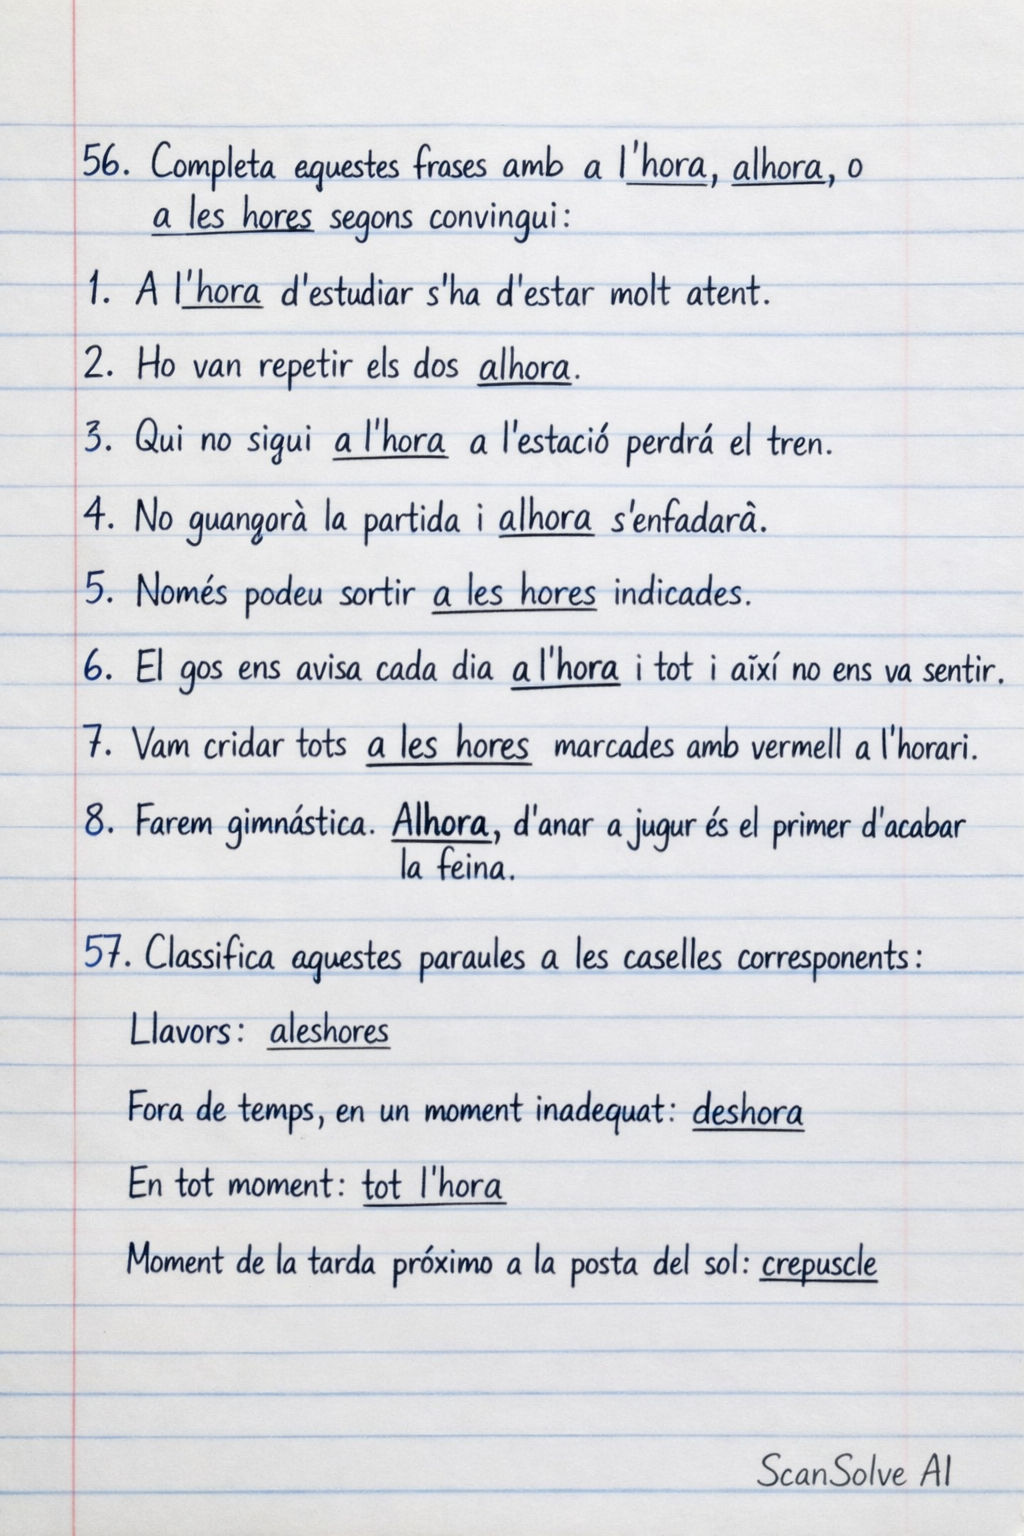 56. Completa aquestes frases amb a l'hora, alhora, o
a les hores segons convingui:
1. A l'hora d'estudiar s'ha d'estar molt atent.
2. Ho van repetir els dos alhora.
3. Qui no sigui a l'hora a l'estació perdrá el tren.
4. No guangorà la partida i alhora s'enfadarà.
5. Només podeu sortir a les hores indicades.
6. El gos ens avisa cada dia a l'hora i tot i aïxí no ens va sentir.
7. Vam cridar tots a les hores marcades amb vermell a l'horari.
8. Farem gimnástica. Alhora, d'anar a jugur és el primer d'acabar
la feina.
57. Classifica aquestes paraules a les caselles corresponents:
Llavors: aleshores
Fora de temps, en un moment inadequat: deshora
En tot moment: tot l'hora
Moment de la tarda próximo a la posta del sol: crepuscle
ScanSolve AI